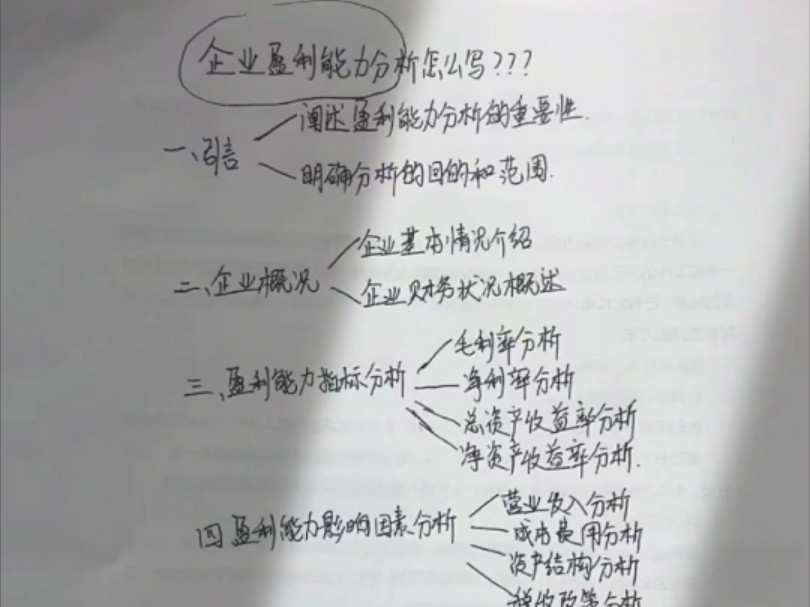 企业盈利能力分析怎么写???
一、引言
阐述盈利能力分析的重要性.
明确分析的目的和范围.
二、企业概况
企业基本情况介绍
企业财务状况概述
三、盈利能力指标分析
毛利率分析
净利率分析
总资产收益率分析
净资产收益率分析.
四、盈利能力影响因素分析
营业收入分析
成本费用分析
资产结构分析
税收政策分析